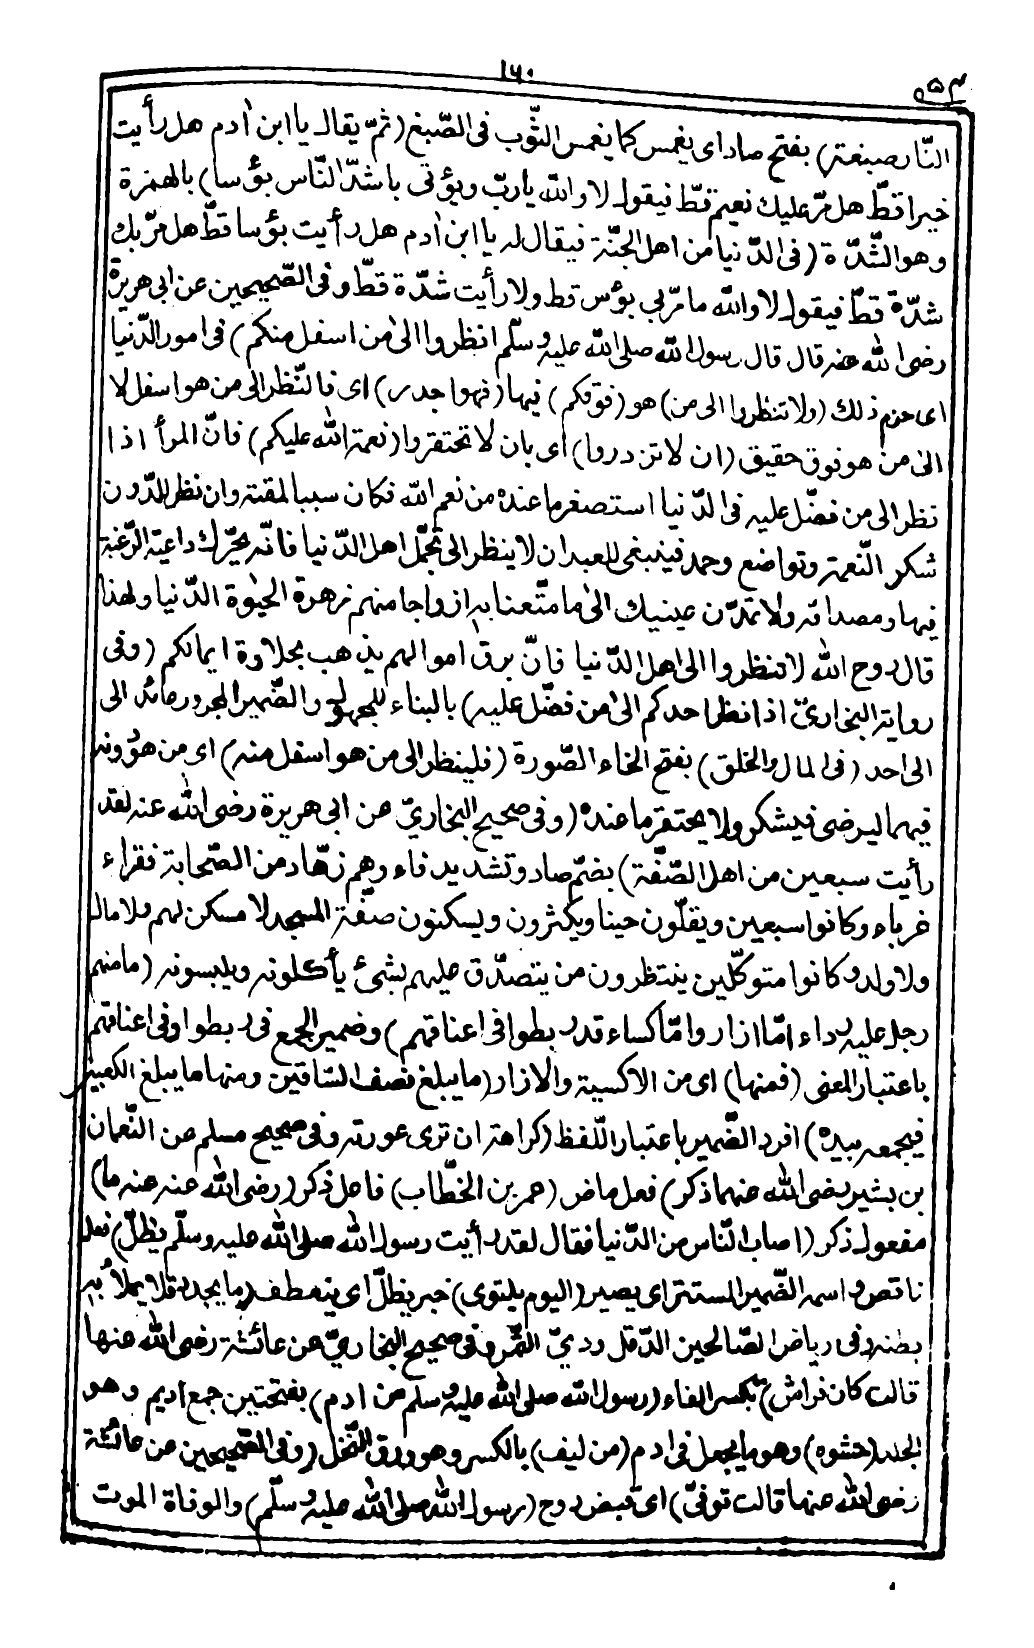 ١٦٠
النّار صبغة) بفتح صاد اى يغمس كما يغمس الثّوب فى الصّبغ (ثمّ يقال يا ابن اٰدم هل رأيت
خيرا قطّ هل مرّ عليك نعيم قطّ فيقول لا والله يا ربّ ويؤتى باشدّ النّاس بؤسا) بالهمزة
وهو الشّدّة (فى الدّنيا من اهل الجنّة فيقال له يا ابن اٰدم هل رأيت بؤسا قطّ هل مرّ بك
شدّة قطّ فيقول لا والله ما مرّ بى بؤس قط ولا رأيت شدّة قطّ وفى الصّحيحين عن ابى هريرة
رضى الله عنه قال قال رسول الله صلى الله عليه وسلّم انظروا الىٰ من اسفل منكم) فى امور الدّنيا
اى حزم ذلك (ولا تنظروا الى من) هو (فوقكم) فيها (فهوا جدر) اى فالنّظر الى من هو اسفل لا
الىٰ من هو فوق حقيق (ان لا تزدروا) اى بان لا تحتقروا (نعمة الله عليكم) فانّ المرأ اذا
نظر الى من فضّل عليه فى الدّنيا استصغر ما عنده من نعم الله فكان سببا لمقته وان نظر للدّون
شكر النّعمة وتواضع وحمد فينبغى للعبد ان لا ينظر الى تجمّل اهل الدّنيا فانّه يحرّك داعية الرّغبة
فيها ومصداقه ولا تمدّن عينيك الىٰ ما متّعنا به ازواجا منهم زهرة الحيوٰة الدّنيا ولهذا
قال روح الله لا تنظروا الى اهل الدّنيا فانّ برق اموالهم يذهب بحلاوة ايمانكم (وفى
رواية البخارىّ اذا نظر احدكم الىٰ من فضّل عليه) بالبناء للمجهول والضّمير المجرور عائد الى
الى احد (فى المال والخلق) بفتح الخاء الصّورة (فلينظر الى من هو اسفل منه) اى من هو دونه
فيهما ليرضى فيشكر ولا يحتقر ما عنده (وفى صحيح البخارىّ عن ابى هريرة رضى الله عنه لقد
رأيت سبعين من اهل الصّفّة) بضمّ صاد وتشديد فاء وهم زهّاد من الصّحابة فقراء
غرباء وكانوا سبعين ويقلّون حينا ويكثرون ويسكنون صفّة المسجد لا مسكن لهم ولا مال
ولا ولد وكانوا متوكّلين ينتظرون من يتصدّق عليهم بشئ يأكلونه ويلبسونه (ما منهم
رجل عليه رداء امّا ازار وامّا كساء قد ربطوا فى اعناقهم) وضمير الجمع فى ربطوا وفى اعناقهم
باعتبار المعنى (فمنها) اى من الاكسية والازار (ما يبلغ نصف السّاقين ومنها ما يبلغ الكعبين
فيجمعه بيده) افرد الضّمير باعتبار اللّفظ (كراهة ان ترى عورته وفى صحيح مسلم عن النّعمان
بن بشير رضى الله عنهما ذكر) فعل ماض (عمر بن الخطّاب) فاعل ذكر (رضى الله عنه عنه ما)
مفعول ذكر (اصاب النّاس من الدّنيا فقال لقد رأيت رسول الله صلى الله عليه وسلّم يظلّ) فعل
ناقص واسمه الضّمير المستتر اى يصير (اليوم يلتوى) خبر يظلّ اى ينعطف (ما يجد دقلا يملأ به
بطنه) وفى رياض الصّالحين الدّقل ردىّ التّمر (وفى صحيح البخارىّ عن عائشة رضى الله عنها
قالت كان فراش) بكسر الفاء (رسول الله صلى الله عليه وسلم من ادم) بفتحتين جمع اديم وهو
الجلد (حشوه) وهو ما يجعل فى ادم (من ليف) بالكسر وهو ورق النّخل (وفى الصّحيحين عن عائشة
رضى الله عنها قالت توفّى) اى قبض روح (رسول الله صلى الله عليه وسلّم) والوفاة الموت